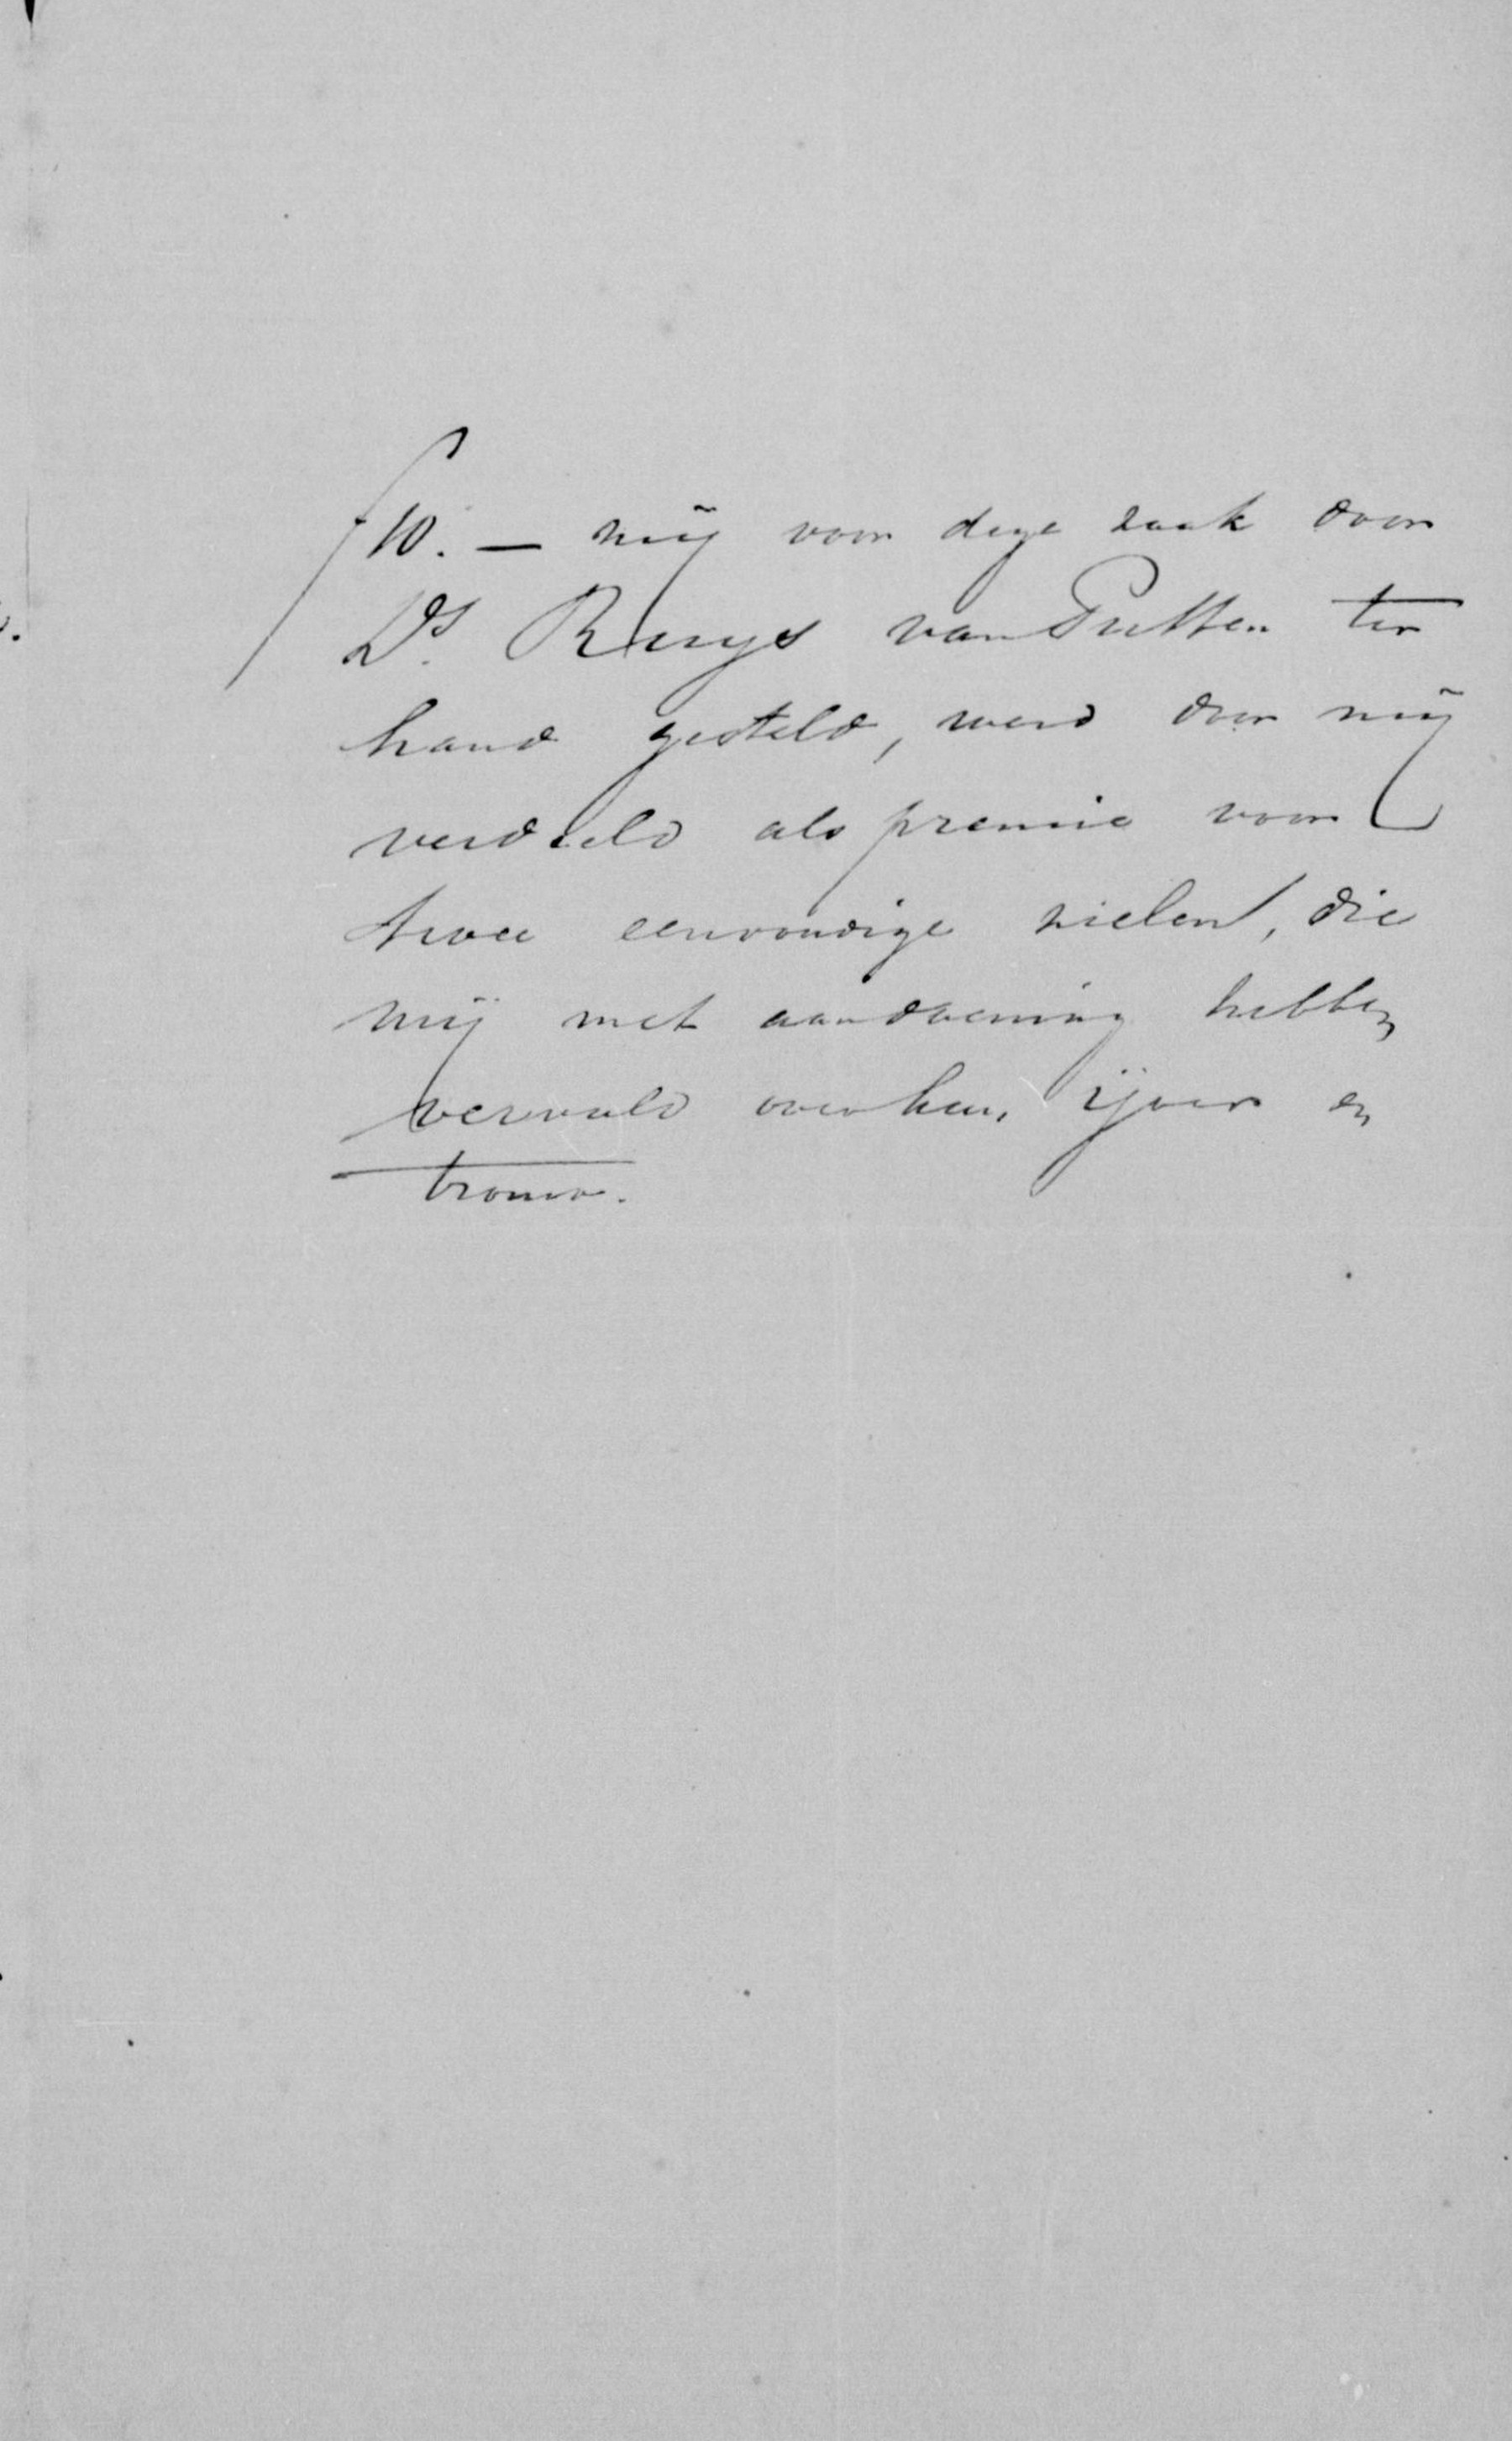 f 10. — mij voor deze zaak door
Ds. Ruys van Putten ter
hand gesteld, werd door mij
verdeeld als premie voor
twee eenvoudige zielen, die
mij met aandoening hebben
vervuld over hun ijver en
trouw.